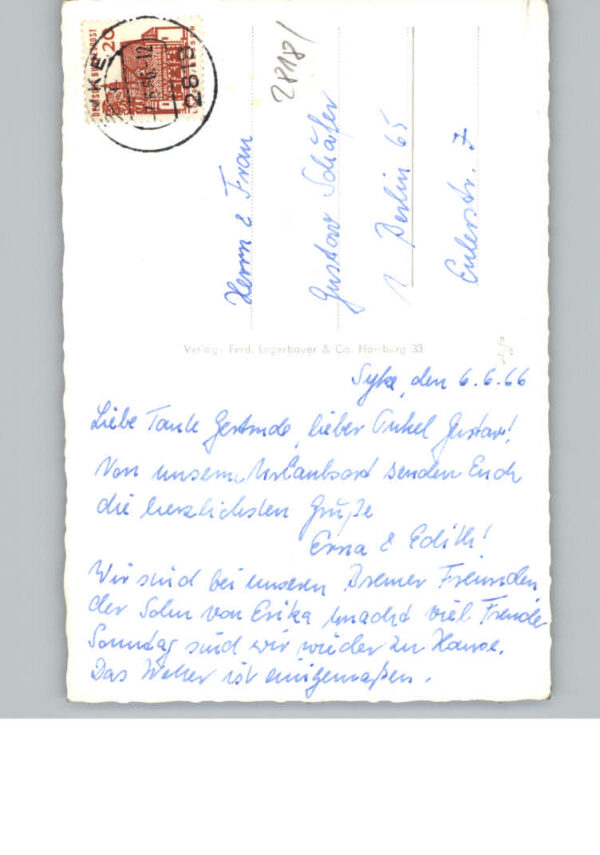 DEUTSCHE BUNDESPOST
20
SYKE
2818
28181
Herrn & Frau
Gustav Schäfer
1 Berlin 65
Eulerstr. 7
Verlag: Ferd. Lagerbauer & Co. Hamburg 33
Syke, den 6.6.66
Liebe Tante Gertrude, lieber Onkel Gustav!
Von unserm Urlaubsort senden Euch
die herzlichsten Grüße
Erna & Edith!
Wir sind bei unsern Bremer Freunden
der Sohn von Erika macht viel Freude
Sonntag sind wir wieder zu Hause.
Das Wetter ist einigermaßen.